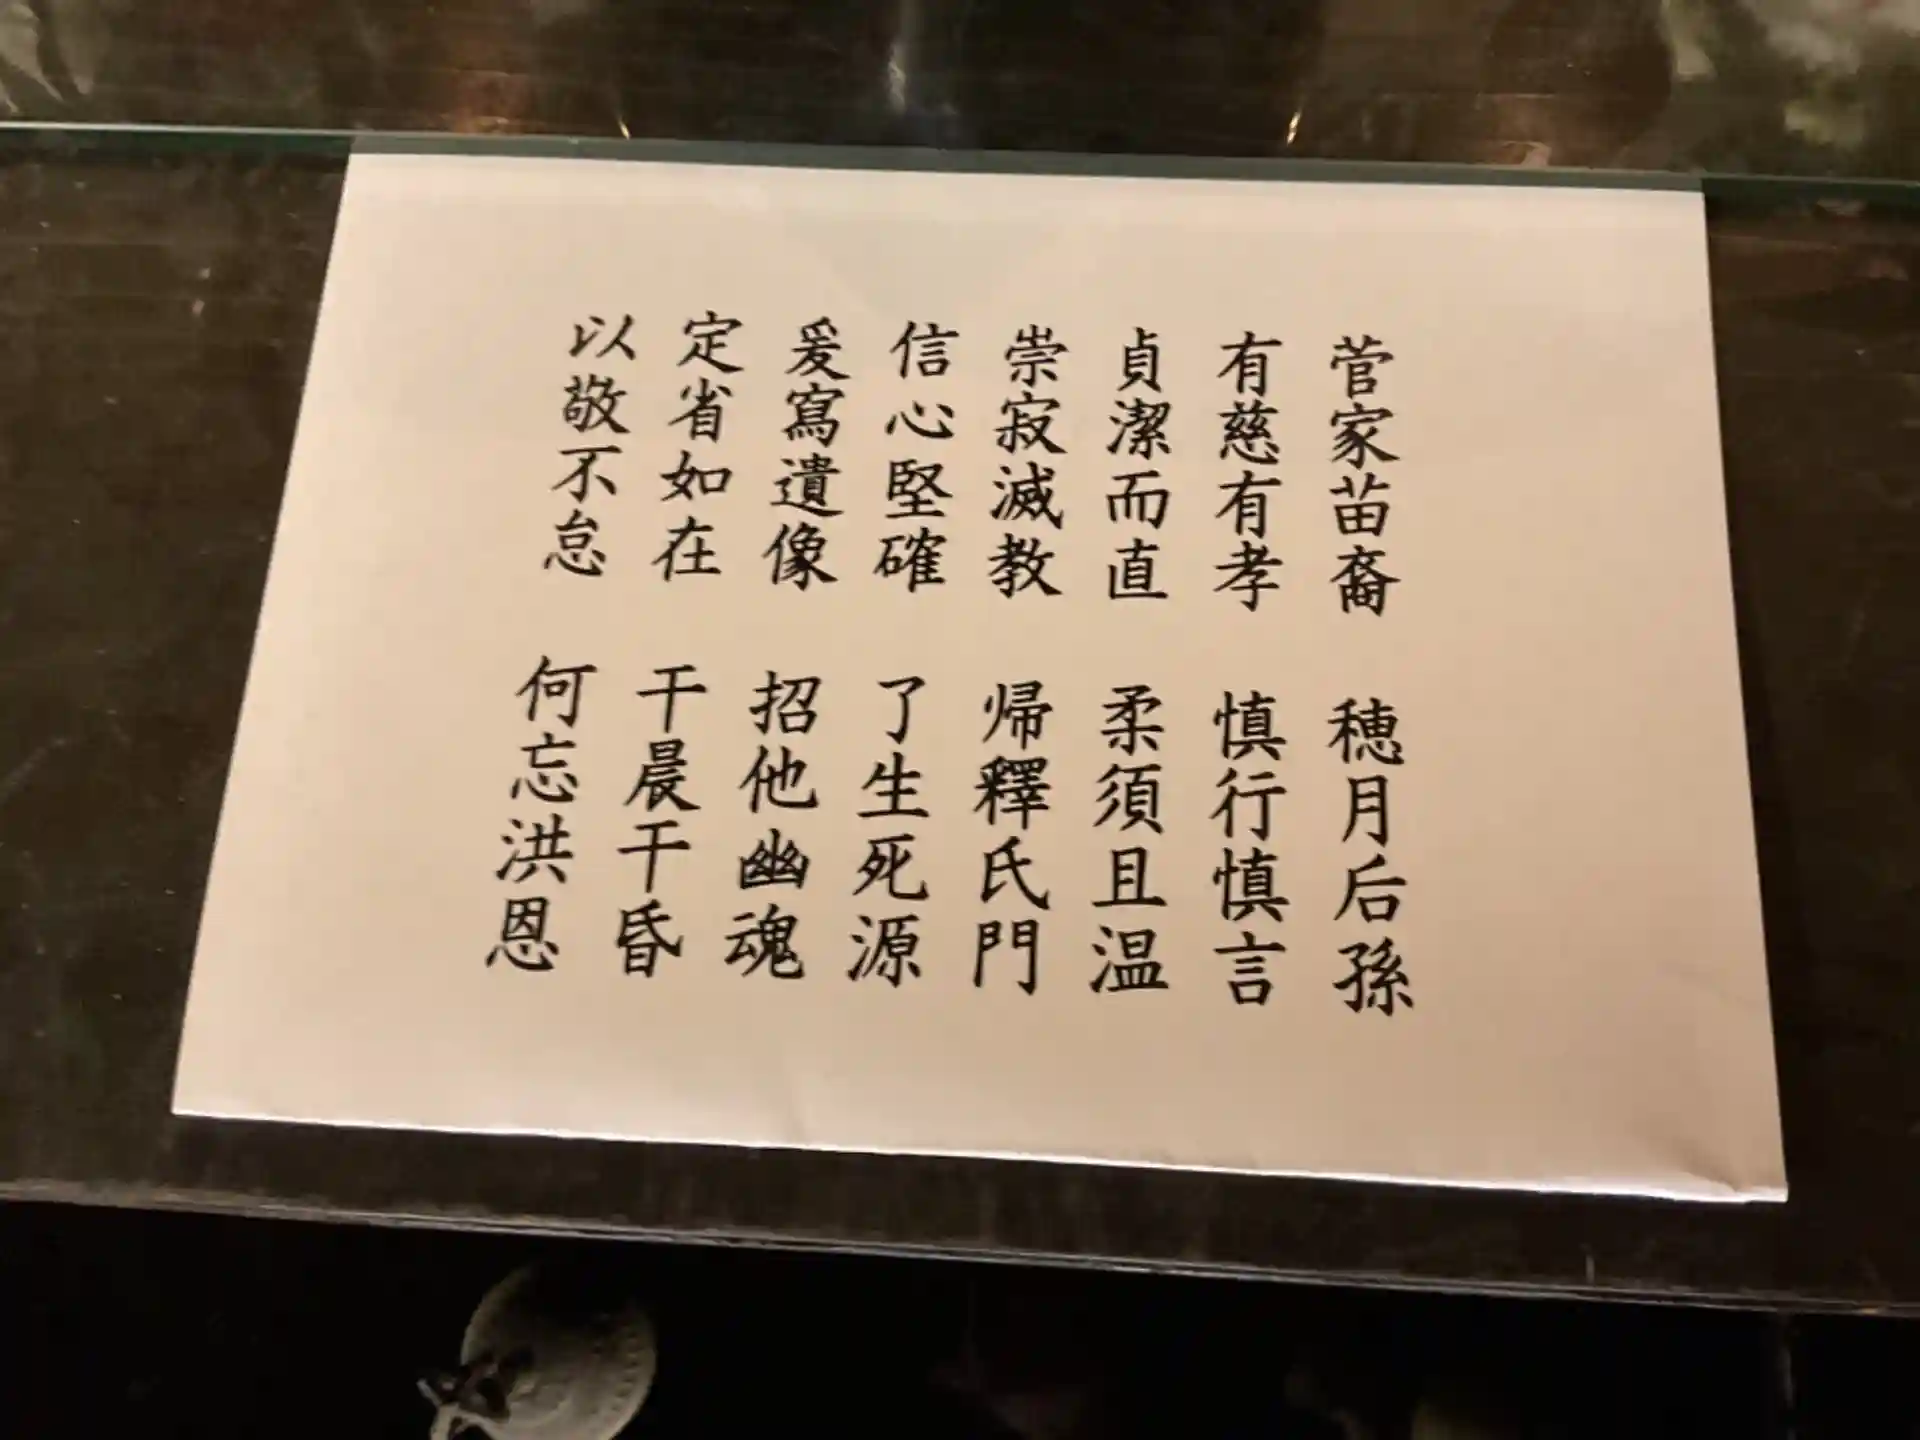 菅家苗裔 穂月后孫
有慈有孝 慎行慎言
貞潔而直 柔須且温
崇寂滅教 帰釋氏門
信心堅確 了生死源
爰寫遺像 招他幽魂
定省如在 干晨干昏
以敬不怠 何忘洪恩